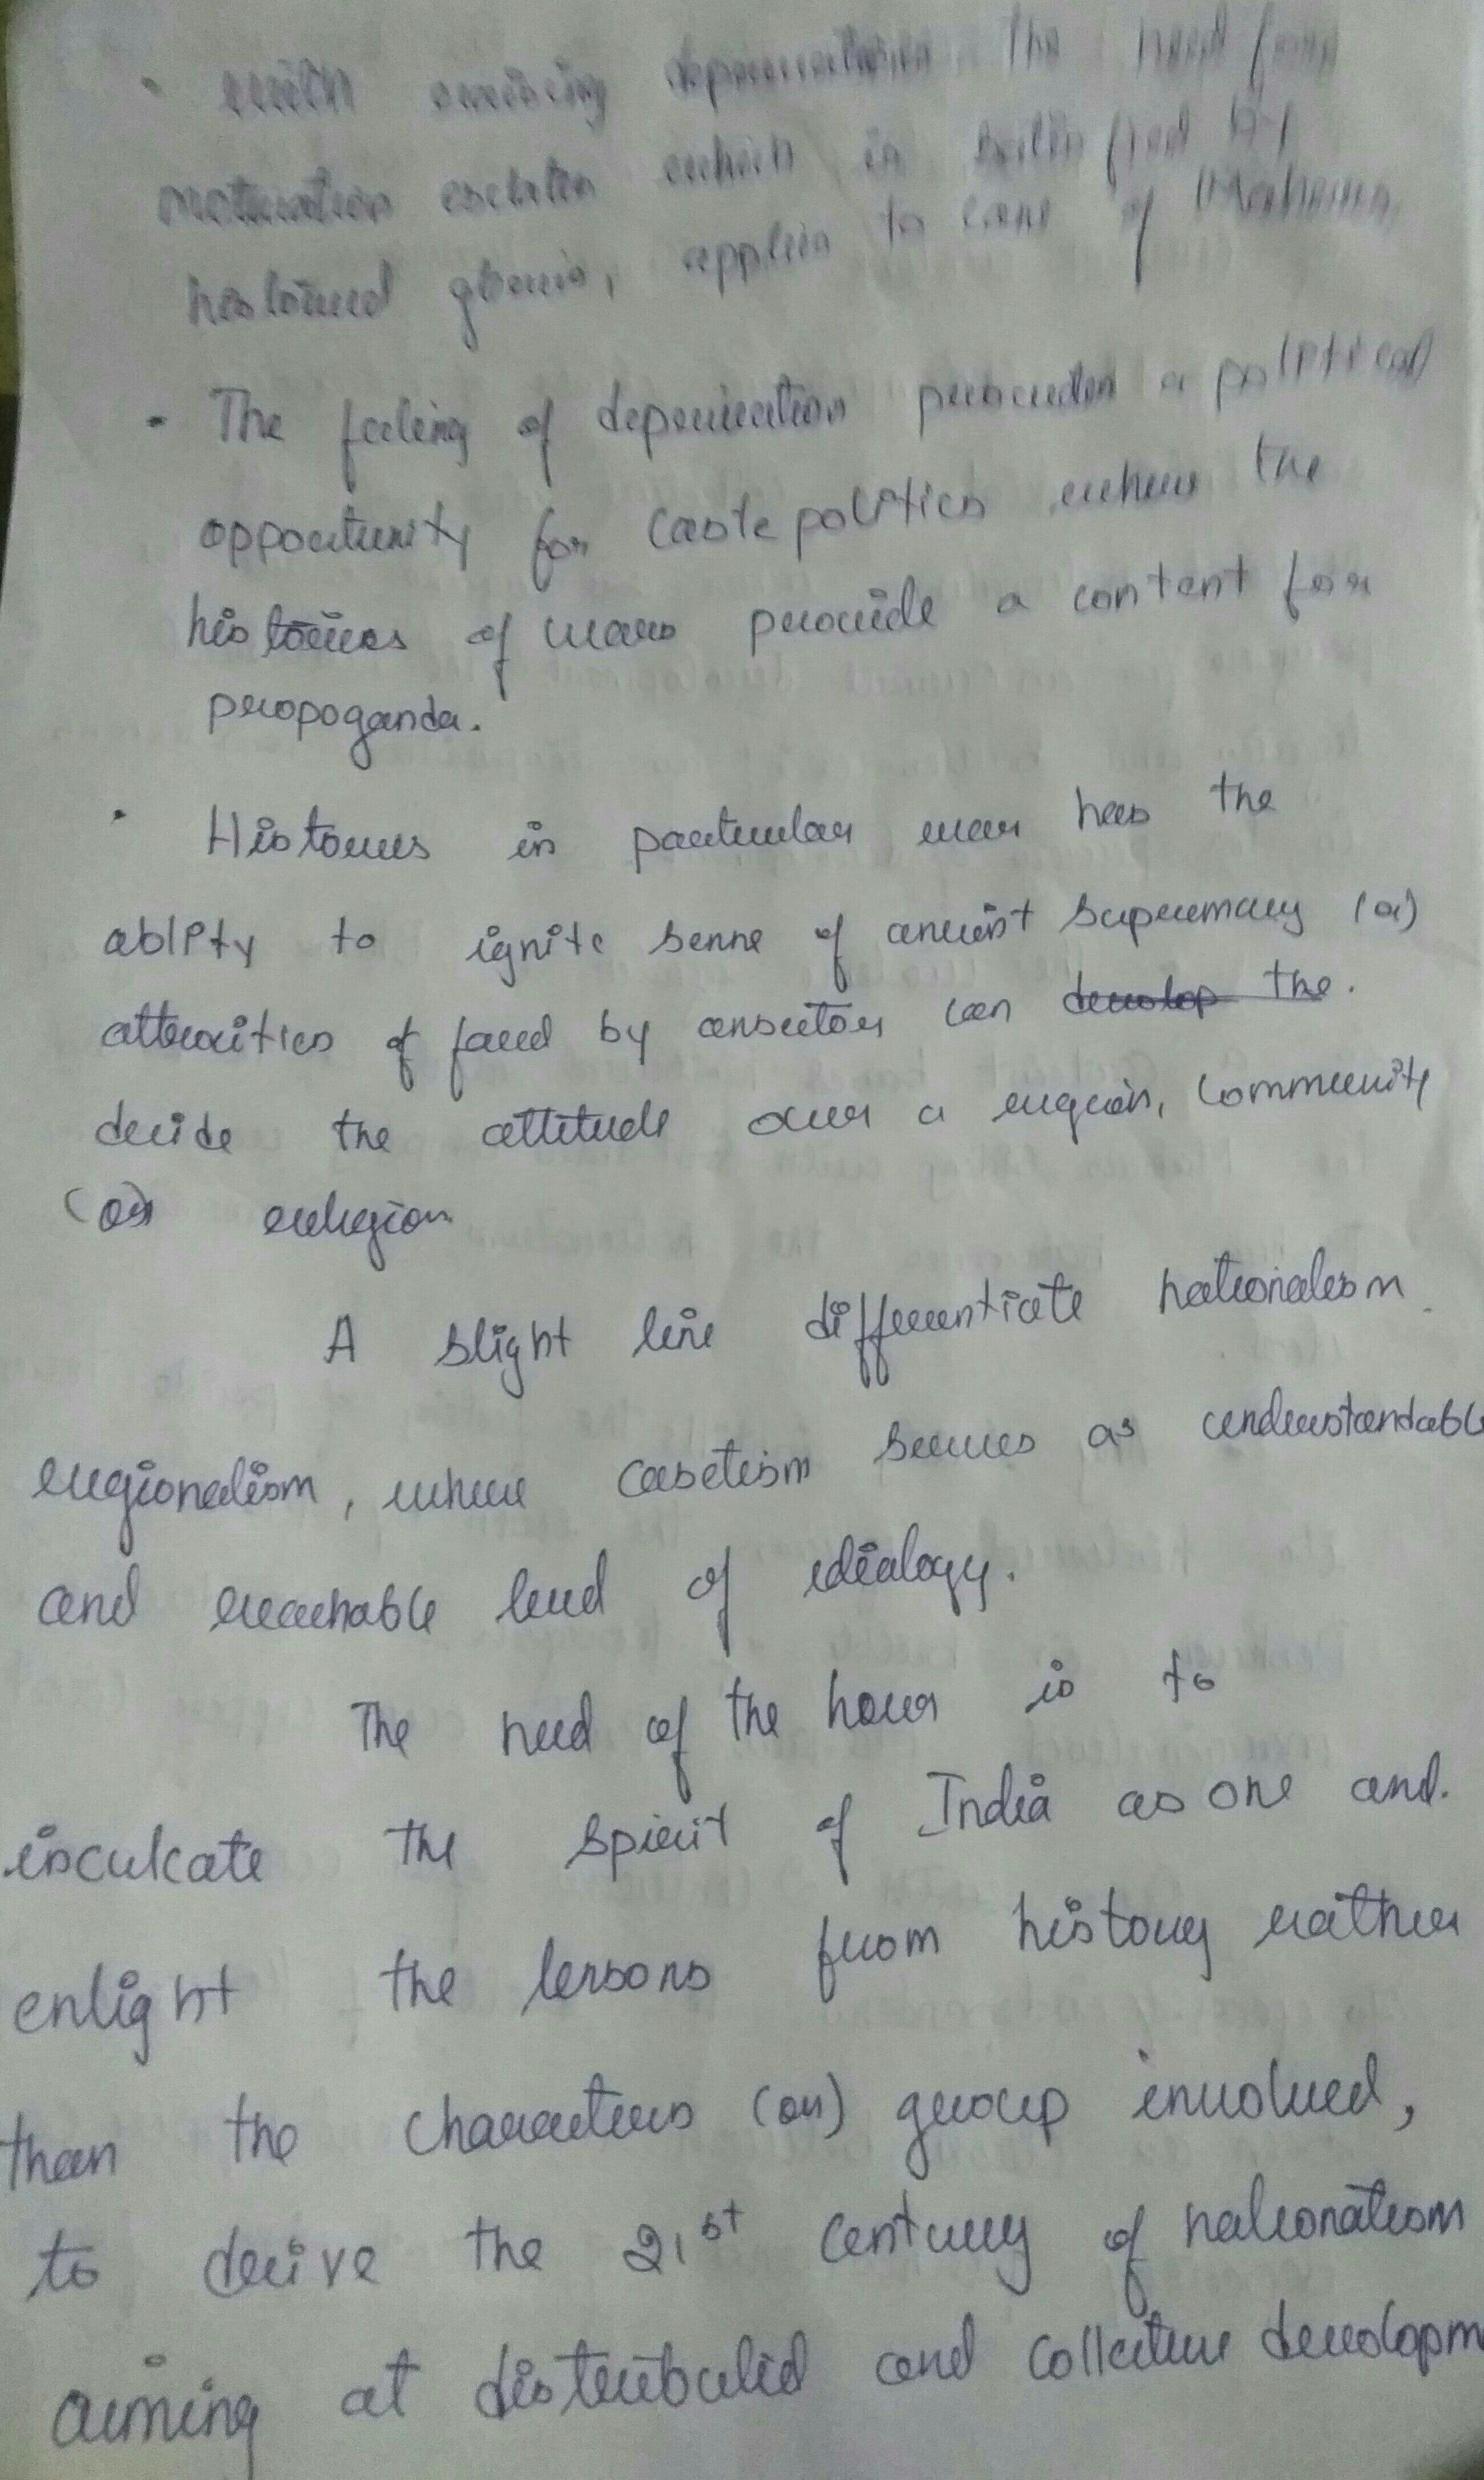 • with arising depreivation the need for
motivation exists which is satisfied by
historied glories, applies to case of Mahars,
• The feeling of depreivation provides a political
opportunity for Caste politics where the
histories of wars provide a content for
propoganda.
• Histories in particular war has the
ablity to ignite sense of ancient supremacy (or)
attrocities of faced by ansectors can develop the.
decide the attitude over a region, Community
(or) religion
A slight line differentiate nationalism
regionalism, where casetism serves as understandable
and reachable level of idealogy.
The need of the hour is to
inculcate the spirit of India as one and.
enlight the lessons from history rather
than the characters (or) group involved,
to derive the 21st century of nationalism
aiming at distributed and collective developm